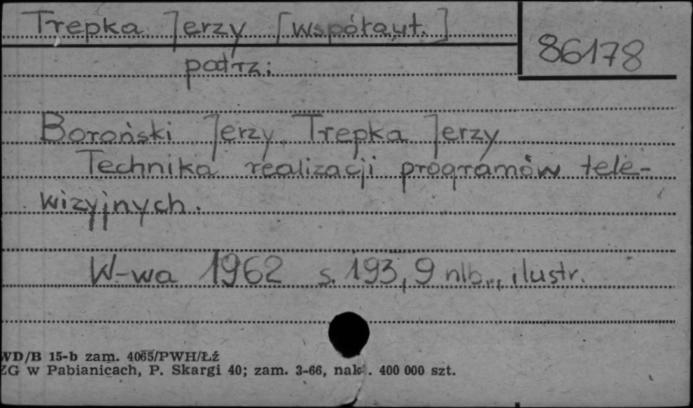 Trepka Jerzy [współaut.]
86178
patrz:
Boroński Jerzy, Trepka Jerzy
Technika realizacji programów tele-
wizyjnych.
W-wa 1962 s. 193, 9 nlb., ilustr.
WD/B 15-b zam. 4065/PWH/Łź
ZG w Pabianicach, P. Skargi 40; zam. 3-66, nakł. 400 000 szt.